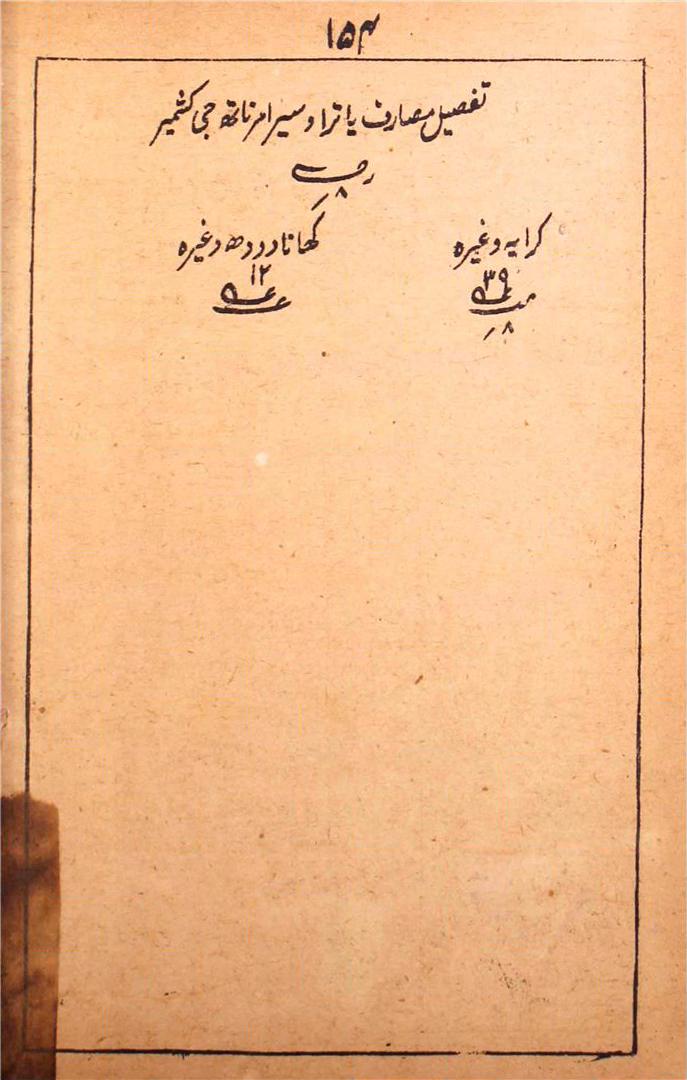 ۱۵۴
تفصیل مصارف یاترا و سیر امرناتھ جی کشمیر
۸
کرایہ وغیرہ
۳۹
۸
کھانا دودھ وغیرہ
۱۲